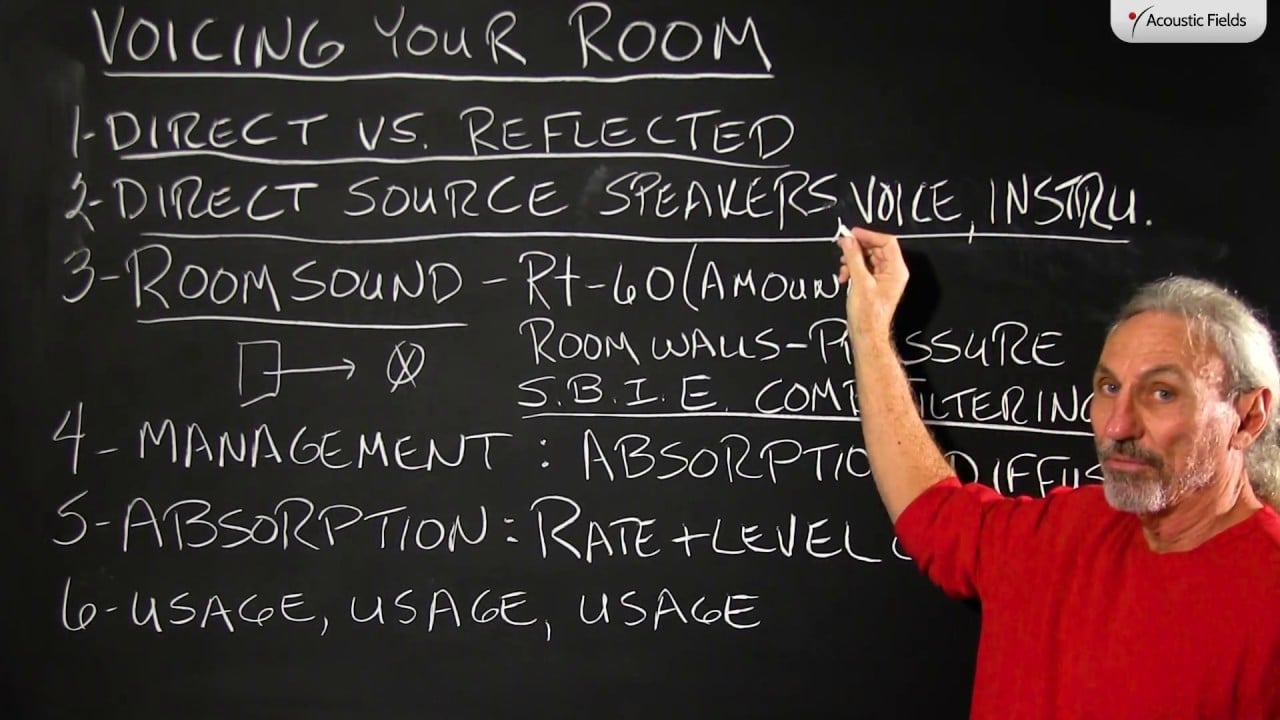 Acoustic Fields
VOICING YOUR ROOM
1-DIRECT VS. REFLECTED
2-DIRECT SOURCE SPEAKERS, VOICE, INSTRU.
3-ROOM SOUND - Rt-60 (AMOUN
ROOM WALLS-PRESSURE
S.B.I.E. COMB FILTERING
4- MANAGEMENT: ABSORPTIO DIFFUS
5-ABSORPTION: RATE+LEVEL
6-USAGE, USAGE, USAGE